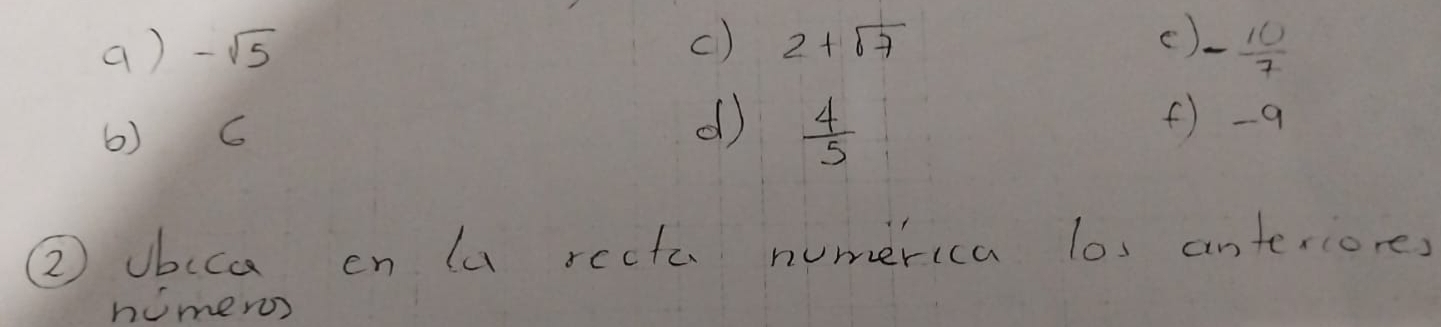 a) -√5 c) 2+√7 e) -10/7
b) 6 d) 4/5 f) -9
② Ubica en la recta numérica los anteriores
números